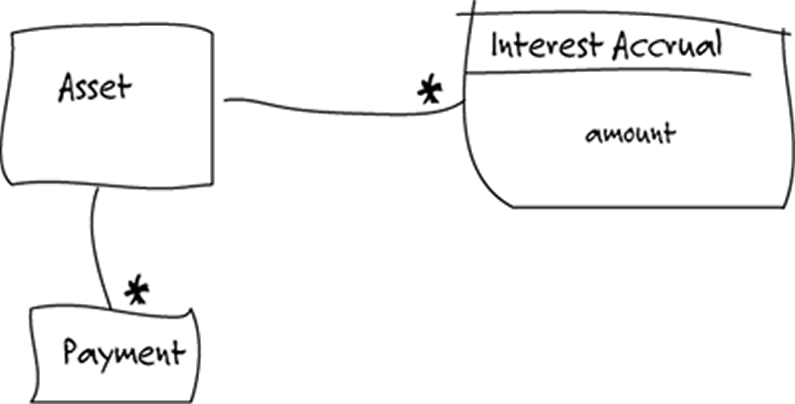 Asset
Interest Accrual
amount
*
*
Payment